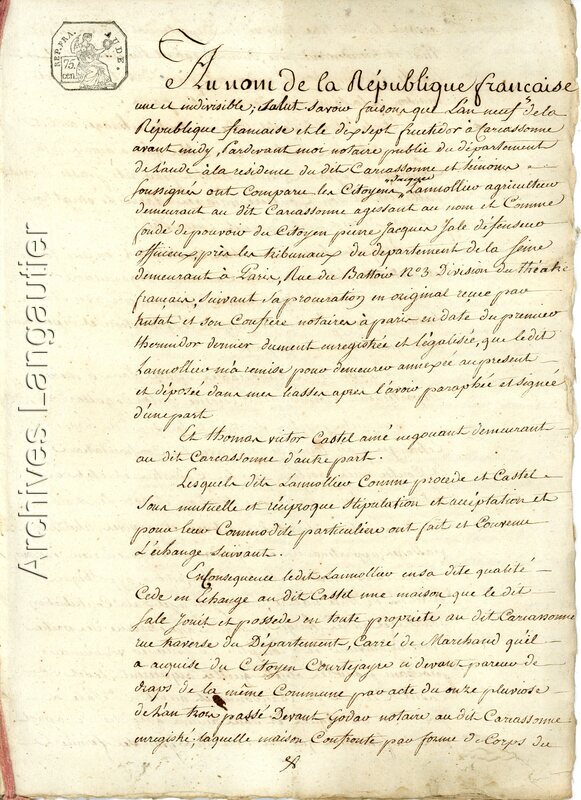 REP. FRA.
AUDE.
75.
cen.
Au nom de la République française
une et indivisible, salut savoir faisons que L'an neuf de la
République francaise et le dix sept fructidor à Carcassonne
avant midy, Pardevant moi notaire public du département
de L'aude à la residence du dit Carcassonne et témoins
soussignés ont Comparu les Citoyens Jacques Lannollier agriculteur
demeurant au dit Carcassonne agissant au nom et Comme
fondé de pouvoir du Citoyen pierre Jacques Sale défenseur
officieux près les tribunaux du departement de la Seine
demeurant à Paris, Rue du Battoir N°3 Division du théatre
francais, suivant sa procuration en original recue par
hutat et son Confrere notaires à paris en date du premier
thermidor dernier dument enregistrée et légalisée, que le dit
Lannollier m'a remise pour demeurer annexée au present
et déposée dans mes liasses apres l'avoir paraphée et signée
d'une part
Et thomas victor Castel ainé negociant demeurant
au dit Carcassonne d'autre part.
Lesquels dits Lannollier Comme procede et Castel
sous mutuelle et réciproque Stipulation et acceptation et
pour leur Commodité particulière ont fait et Convenu
L'échange suivant.
En Consequence le dit Lannollier en sa dite qualité
Cede en Echange au dit Castel une maison que le dit
Sale Jouit et possede en toute propriété au dit Carcassonne
rue traverse du Département, Carré de Marchand qu'il
a acquise du Citoyen Courtejaire ci devant pareur de
draps de la même Commune par acte du onze pluviose
de L'an trois passé Devant Godar notaire au dit Carcassonne
enregistré, laquelle maison Confronte par forme de Corps du
Archives Langautier